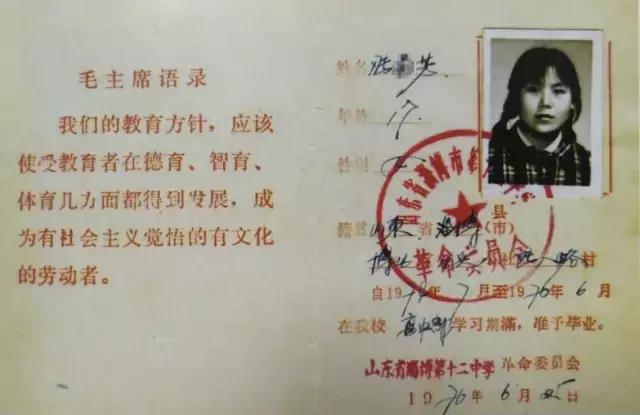 毛主席语录
我们的教育方针，应该
使受教育者在德育、智育、
体育几方面都得到发展，成
为有社会主义觉悟的有文化
的劳动者。
姓名
年龄
性别 女
籍贯 山东 省 淄博 县(市)
村
自19 年7月至1976年6月
在我校 高中部 学习期满，准予毕业。
山东省淄博第十二中学 革命委员会
1976年6月25日
山东省淄博市第
革命委员会